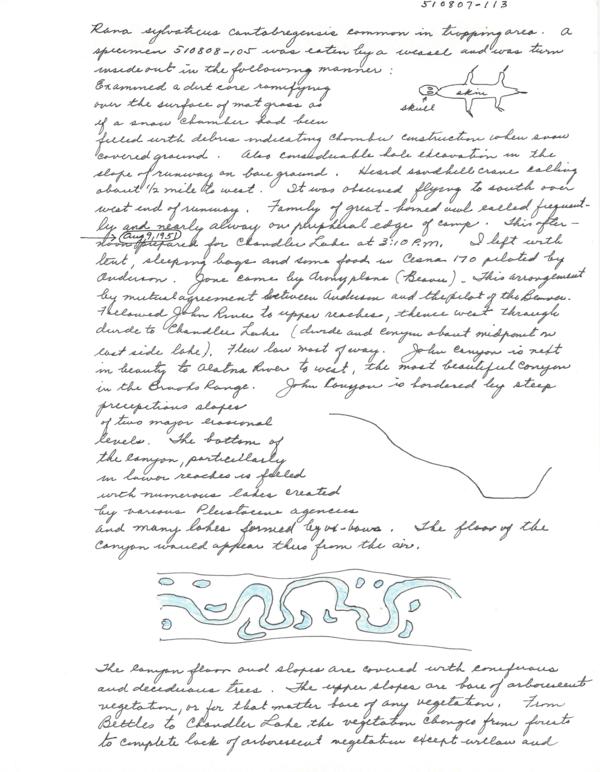 510807-113
Rana sylvaticus cantabregensis common in trapping area. A
specimen 510808-105 was eaten by a weasel and was turn
inside out in the following manner:
skin
skull
Examined a dirt core ramifying
over the surface of mat grass as
if a snow chamber had been
filled with debris indicating chamber construction when snow
covered ground. Also considerable hole excavation in the
slope of runway on bare ground. Heard sandhill crane calling
about 1/2 mile to west. It was observed flying to south over
west end of runway. Family of great-horned owl called frequent-
ly and nearly always on peripheral edge of camp. This after-
(Aug 9, 1951)
noon prepared for Chandler Lake at 3:10 P.M. I left with
tent, sleeping bags and some food in Cesna 170 piloted by
Anderson. Jone came by Army plane (Beaver). This arrangement
by mutual agreement between Anderson and the pilot of the Beaver.
Followed John River to upper reaches, thence west through
divide to Chandler Lake (divide and canyon about midpoint on
east side lake). Flew low most of way. John canyon is next
in beauty to Alatna River to west, the most beautiful canyon
in the Brooks Range. John Canyon is bordered by steep
precepitious slopes
of two major erosional
levels. The bottom of
the canyon, particularly
in lower reaches is filled
with numerous lakes created
by various Pleistocene agencies
and many lakes formed by ox-bows. The floor of the
canyon would appear thus from the air.
The canyon floor and slopes are covered with coniferous
and deciduous trees. The upper slopes are bare of arborescent
vegetation, or for that matter bare of any vegetation. From
Bettles to Chandler Lake the vegetation changes from forests
to complete lack of arborescent vegetation except willow and